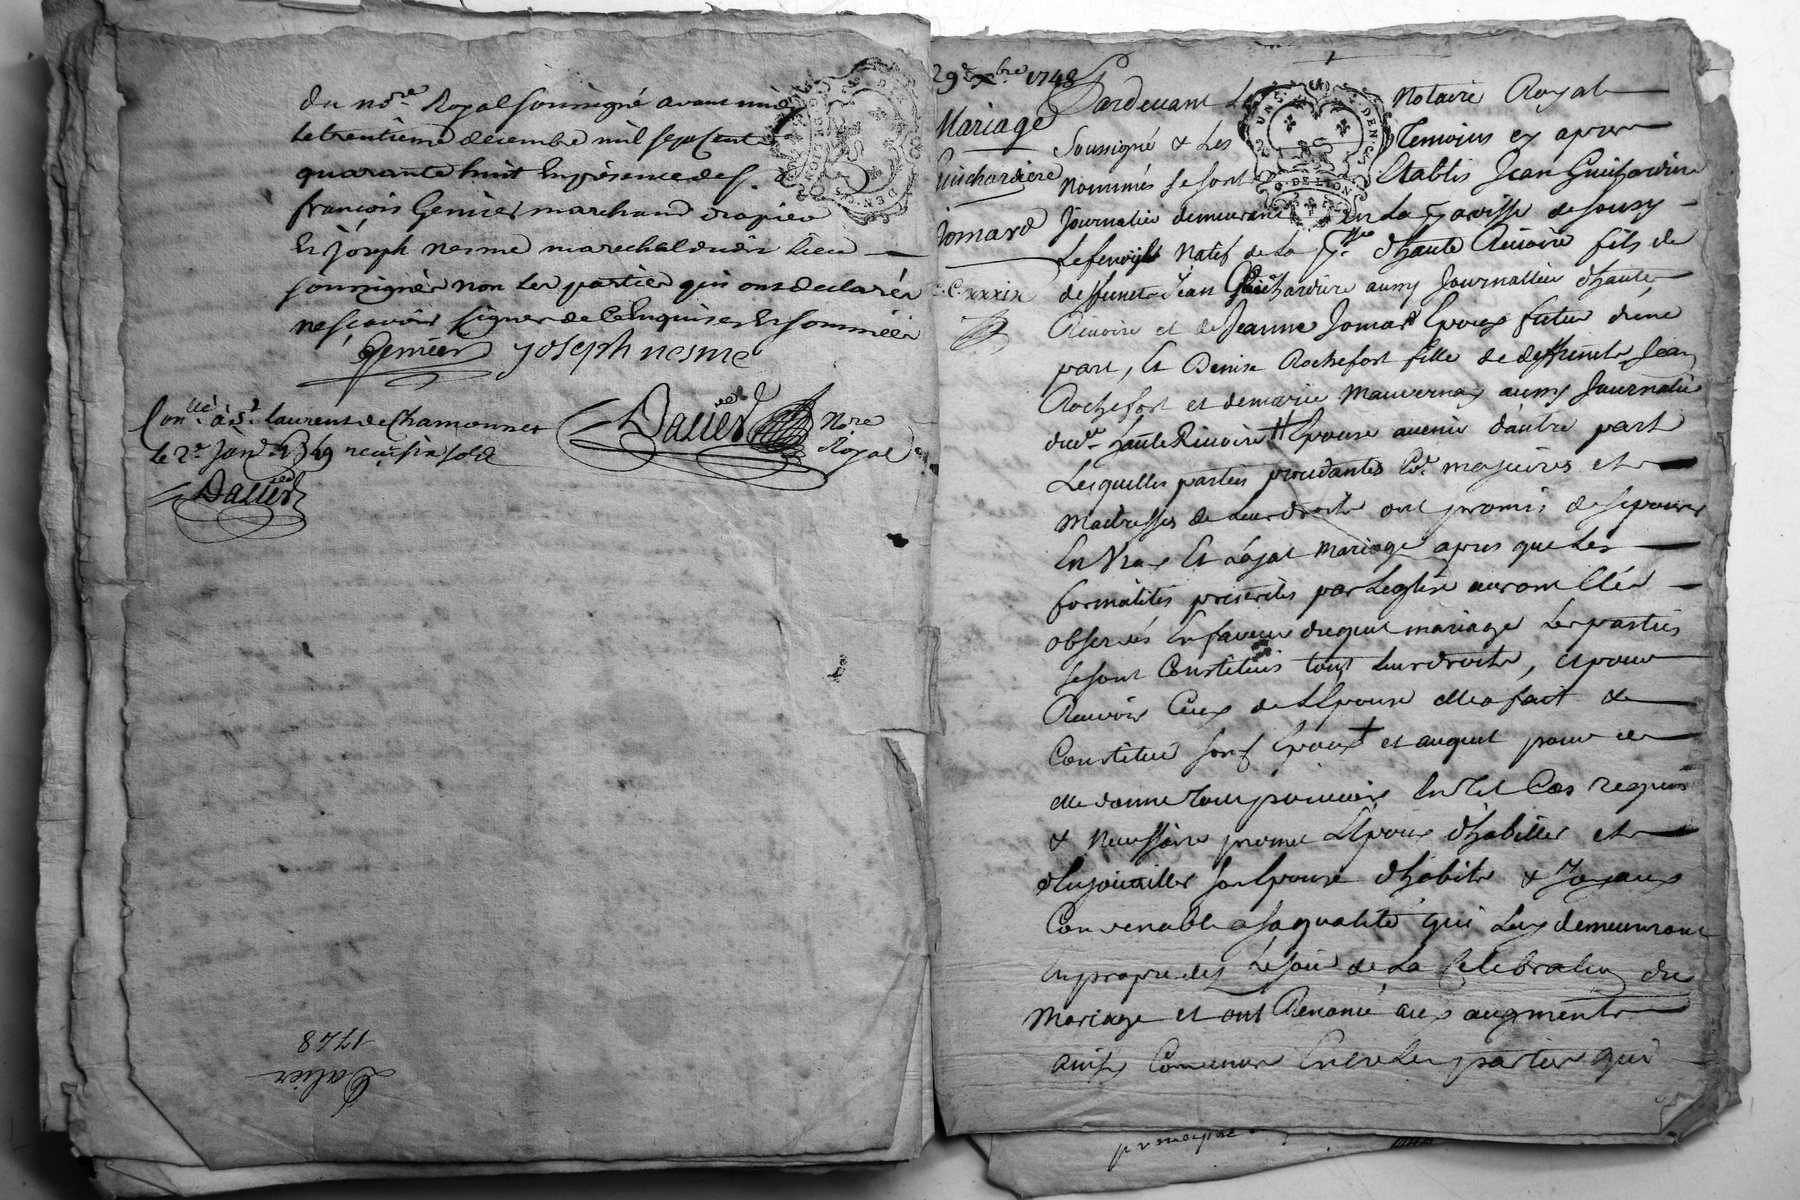 du no.re Royal soussigné avant midi
le trentieme decembre mil sept cent
quarante huit En presence de s.
françois Genier marchand drapier
Et joseph nesme marechal dudit lieu
soussignés non les parties qui ont declarés
ne sçavoir signer de ce Enquises Et sommées
Genier joseph nesme
Con.llé à S.t laurent de Chamousset
le 2.e Janv. 1749 reçu six sols
Dalier
Dalier No.re
Royal
Dalier
1748
29.e xbre 1748
Mariage
Guichardiere
Jomard
C. xxxix
Pardevant Le Notaire Royal
Soussigné & Les Temoins cy apres
Nommés se sont Etablis Jean Guichardiere
Journalier demeurant En La Paroisse de Soury
Natif de La P.sse d'haute Rivoire fils de
deffunct Jean Guichardiere aussy Journallier d'haute
Rivoire et de Jeanne Jomard Epoux futur d'une
part, Et Denise Rochefort fille de deffunct Jean
Rochefort et de marie Mauvernay aussy Journalier
dud. haute Rivoire # Epouse avenir d'autre part
Lesquelles parties procedantes Co.e majeures et
Maitresses de Leur droits ont promis de s'epouser
En Vray Et Légal Mariage apres que Les
formalités prescrites par Leglise auront Etés
observés En faveur duquel mariage Les parties
se sont Constitués tous Leurs droits, et pour
Recevoir Ceux de L'Epouse elle a fait &
Constitué son f. Epoux + et auquel pour ce
elle donne tout pouvoir En tel Cas requis
& Necessaire promet L'Epoux d'habiller et
d'Enjouailler son Epouse d'habits & Joyaux
Convenable a sa qualité qui Luy demeureront
En propre dez Le Jour de La Celebration du
Mariage et ont Renoncé aux augments
ainsy Convenu Entre Les parties qui